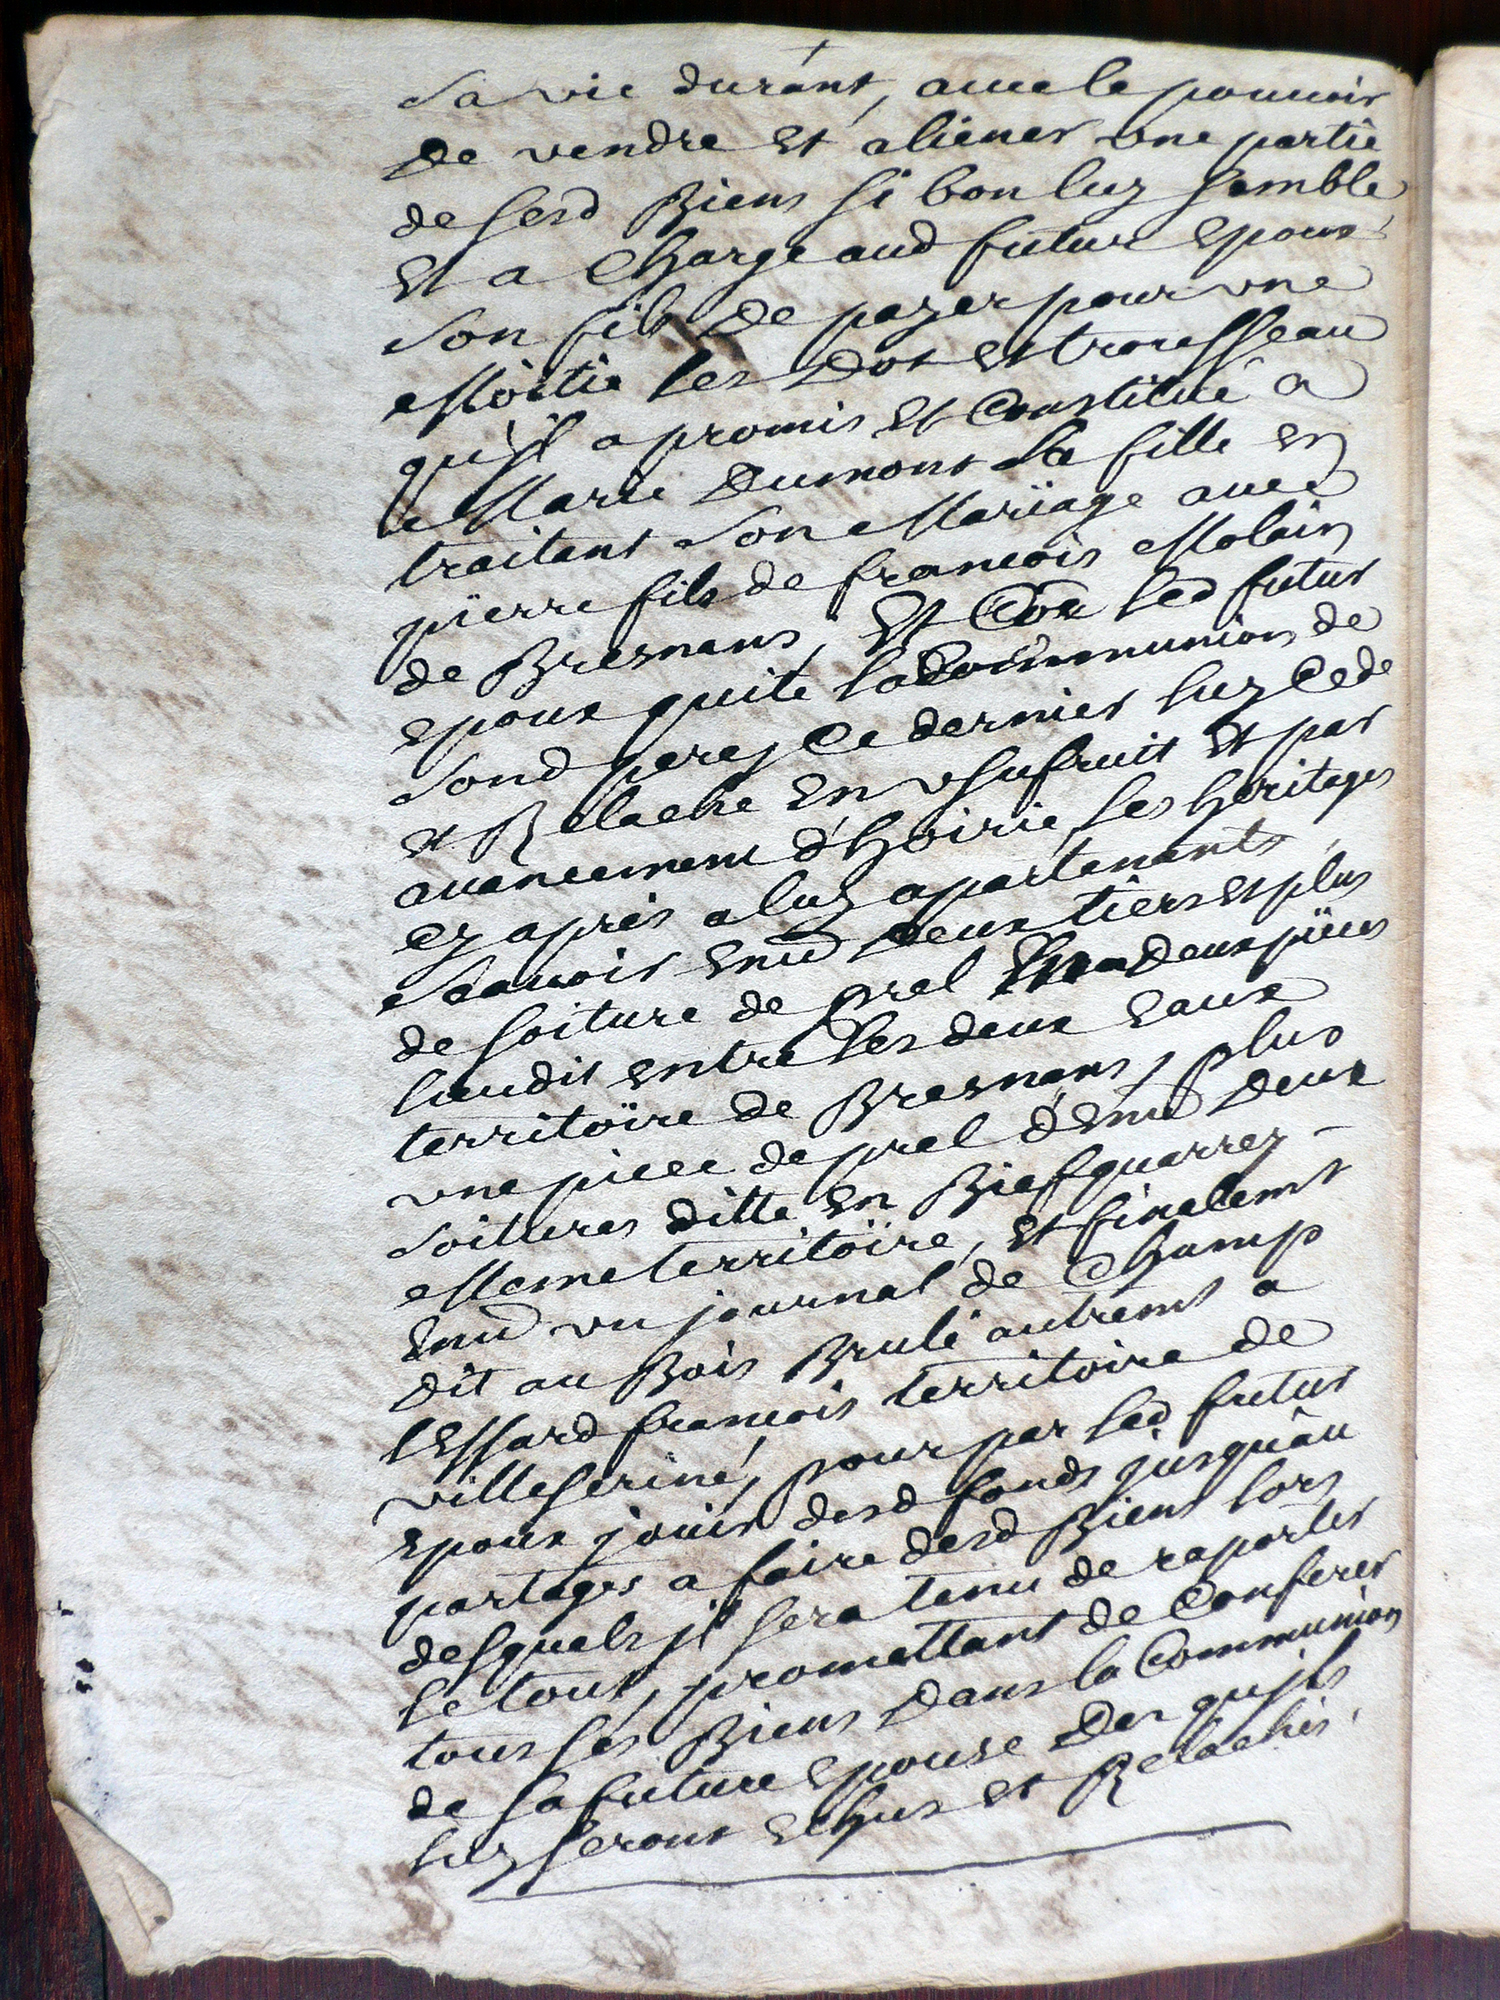 sa vie durant, avec le pouvoir
de vendre et aliener une partie
de sesd biens si bon luy semble
et a charge aud futur epoux
son fils de payer pour une
moitie les dot et trousseau
qu'jl a promis et constitué a
Marie Dumont sa fille en
traitant son mariage avec
pierre fils de francois Molain
de Bresnans, et Cõe led futur
epoux quite la Communion de
sond pere, ce dernier luy cede
et Relache en usufruit et par
avancement d'hoirie, ses heritages
cy apres a luy apartenants,
scavoir envũ deux tiers et plus
de soiture de prel deux pieces
lieudit entre les deux eaux
territoire de Bresnans, plus
une piece de prel d'envũ deux
soitures ditte en Biefquarrey
meme territoire, et finalemt
envũ un journal de champ
dit au Bois Brulé autremt a
l'Essard francois territoire de
villeseriné, pour par led futur
epoux jouir desd fonds jusqu'au
partages a faire desd Biens lors
desquels jl sera tenu de raporter
le tout, promettant de conferer
tous ses Biens dans la Communion
de sa future epouse des qu'jls
luy seront echus et Relachés.